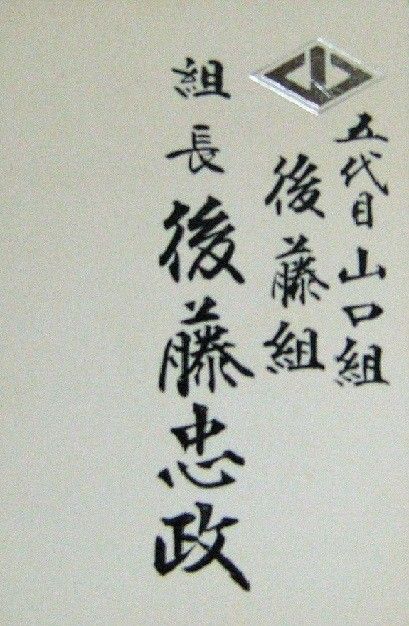 五代目山口組
後藤組
組長後藤忠政